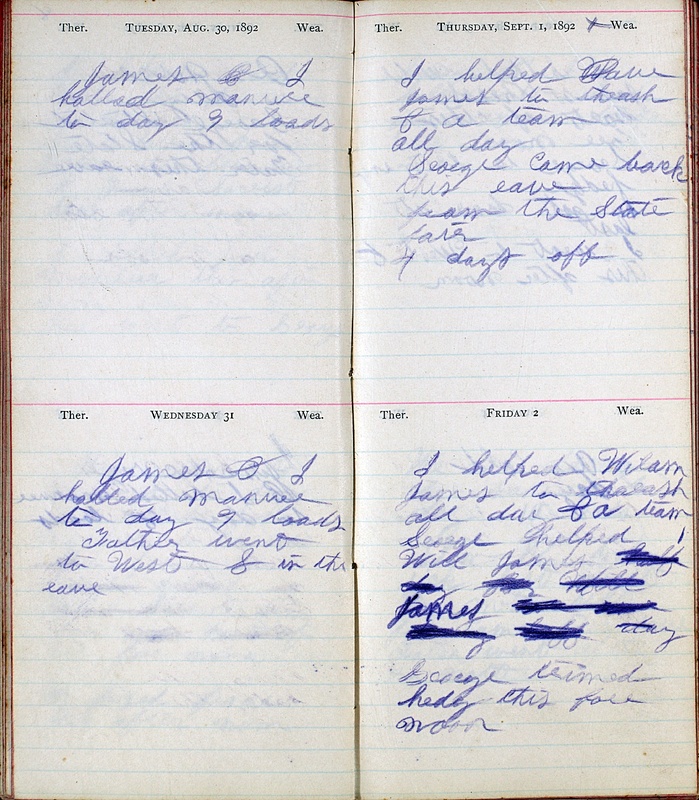 Ther. TUESDAY, AUG. 30, 1892 Wea.
James & I
halled manure
to day 9 loads
Ther. WEDNESDAY 31 Wea.
James & I
halled manure
to day 9 loads
Father went
to West & in the
eave
Ther. THURSDAY, SEPT. 1, 1892 Wea.
I helped Dave
James to thrash
& a team
all day
George Came back
this eave
from the State
fair
4 days off
Ther. FRIDAY 2 Wea.
I helped Wilam
James to
all dar & a team
George helped
Will James
James
day
George trimed
hedg this fore
noon